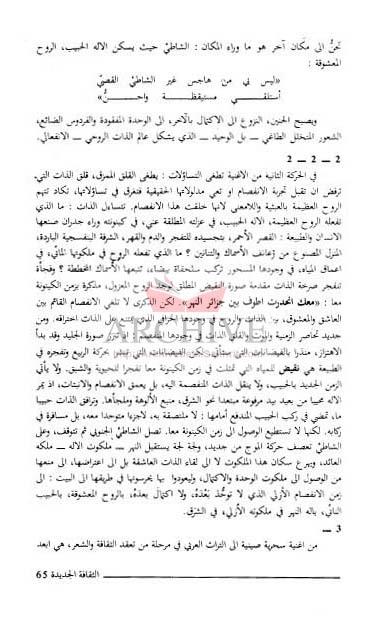 تحنّ الى مكان آخر هو ما وراء المكان : الشاطئ حيث يسكن الاله الحبيب، الروح
المعشوقة :
«ليس بي من هاجس غير الشاطئ القصيّ
أستلقي مستيقظة واحنّ»
ويصبح الحنين، النزوع الى الاكتمال بالآخر، الى الوحدة المفقودة والفردوس الضائع،
الشعور المتخلل الطاغي ــ بل الوحيد ــ الذي يشكل عالم الذات الروحي ــ الانفعالي.
2 ــ 2 ــ
في الحركة الثانية من الاغنية تطغى التساؤلات : يطغى القلق الممزق، قلق الذات التي
ترفض ان تقبل تجربة الانفصام او تعي مدلولاتها الحقيقية فتغرق في تساؤلاتها، تكاد تتهم
الروح العظيمة بالعبثية واللامعنى لانها خلقت هذا الانفصام. تتساءل الذات : ما الذي
تفعله الروح العظيمة، الاله الحبيب، في عزلته المطلقة عني، في كينونته وراء جدران صنعها
الانسان والطبيعة : القصر الأحمر، بتجسيده للتفجر والدم والقهر، الشرفة البنفسجية الباردة،
المنزل المصنوع من زعانف الأسماك والتنانين ؟ ما الذي تفعله الروح في ملكوتها المائي، في
اعماق المياه، في وجودها المسحور تركب سلحفاة بيضاء، تتبعها الأسماك المخططة ؟ وفجأة
تنفجر صرخة الذات مقدمة صورة النقيض المطلق لوجد الروح المعزول، مذكرة بزمن الكينونة
معا : «معك انحدرت اطوف بين جزائر النهر». لكن الذكرى لا تلغي الانفصام القائم بين
العاشق والمعشوق، بين الذات والروح في وجودها الخرافي الذي يمتنع على الذات اختراقه. ومن
جديد تحاصر الزمنية والموت والقلق الذات في وجودها المنفصم : اذ تبرز صورة الجليد وقد بدأ
الاهتراز، منذرا بالفيضانات التي ستأتي. لكن الفيضانات التي تبشر بحركة الربيع وتفجره في
الطبيعة هي نقيض للمياه التي تمثلت في زمن الكينونة معا تفجرا للحيوية والشبق. ولا يأتي
الزمن الجديد بالحبيب، ولا ينقل الذات المنفصمة اليه، بل يعمق الانفصام والانبتات، اذ يمر
الاله محييا من بعيد بيد مرفوعة مبتعدا نحو الشرق، منبع الألوهة وملجأها. وترافق الذات حبيبا
ما، تمضي في ركب الحبيب المندفع أمامها : لا ملتصقة به، لاجزءا متوحدا معه، بل مسافرة في
ركابه. لكنها لا تستطيع الوصول الى زمن الكينونة معا. تصل الشاطئ الجنوبي ثم تتوقف، وعلى
الشاطئ تعصف حركة الموج من جديد، ولجة لجة يستقبل النهر ــ ملكوت الاله ــ ملكه
العائد، ويهرع سكان هذا الملكوت لا الى لقاء الذات العاشقة بل الى اعتراضها، الى منعها
من الوصول الى ملكوت الوحدة والاكتمال، وليعودوا بها يحرسونها في طريقها الى البيت : الى
زمن الانفصام الأزلي الذي لا توحُّد بَعْدَهُ، ولا اكتمال بعدهُ، بالروح المعشوقة، بالحبيب
النائي، باله النهر في ملكوته الأزلي، في الشرق.
3 ــ
من اغنية سحرية صينية الى التراث العربي في مرحلة من تعقد الثقافة والشعر، هي ابعد
الثقافة الجديدة 65
ARCHIVE